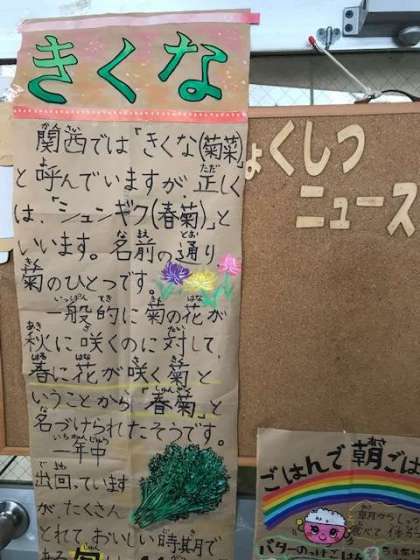 きくな
関西では「きくな(菊菜)
と呼んでいますが正しく
は、「シュンギク(春菊)」と
いいます。名前の通り
菊のひとつです。
一般的に菊の花が
秋に咲くのに対して、
春に花が咲く菊と
いうことから「春菊」と
名づけられたそうです。
一年中
出回っています
が、たくさん
とれて、おいしい時期で
ある
ょくしつ
ニュース
ごはんで朝ごは
バター